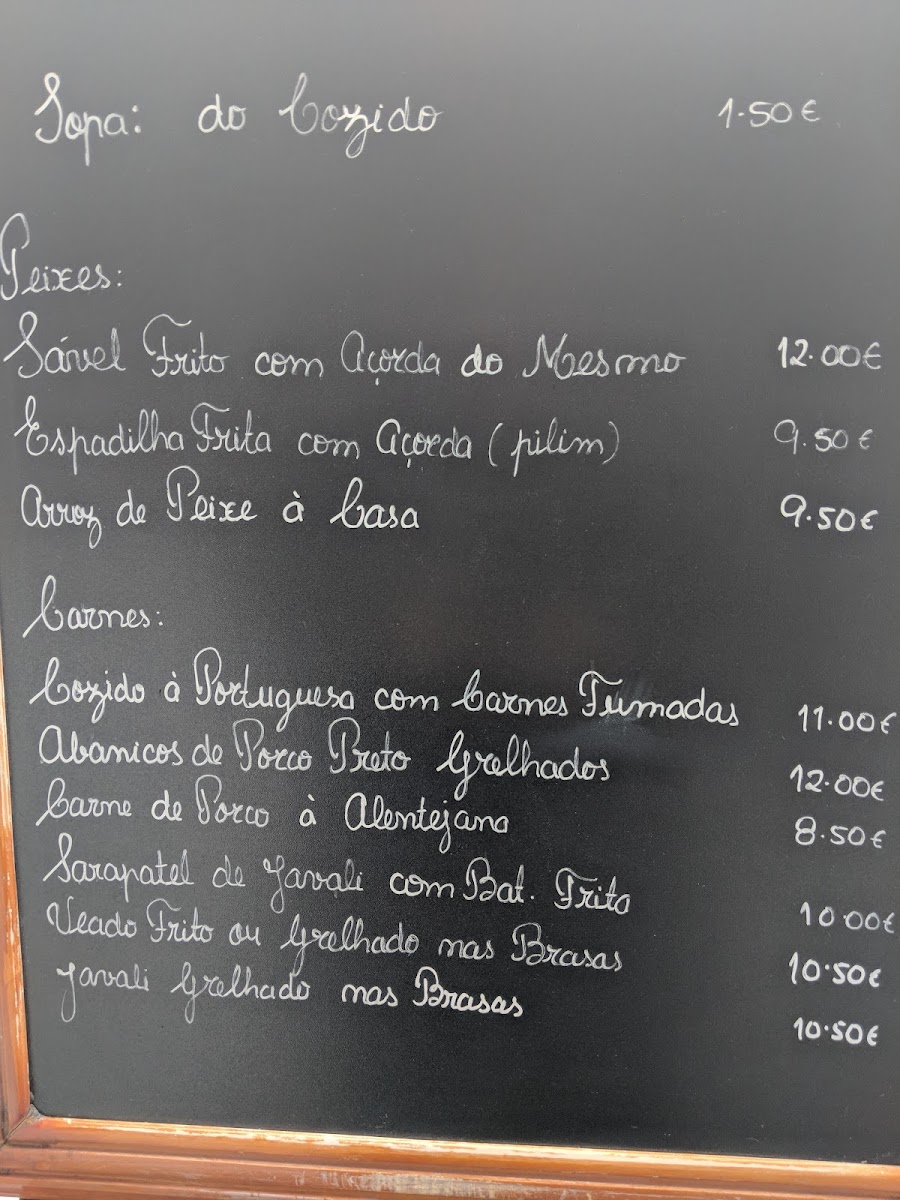 Sopa: do Cozido 1.50€
Peixes:
Sável Frito com Açorda do Mesmo 12.00€
Espadilha Frita com Açorda (pilim) 9.50€
Arroz de Peixe à Casa 9.50€
Carnes:
Cozido à Portuguesa com Carnes Fumadas 11.00€
Abanicos de Porco Preto Grelhados 12.00€
Carne de Porco à Alentejana 8.50€
Sarapatel de Javali com Bat. Frita 10.00€
Veado Frito ou Grelhado nas Brasas 10.50€
Javali Grelhado nas Brasas 10.50€